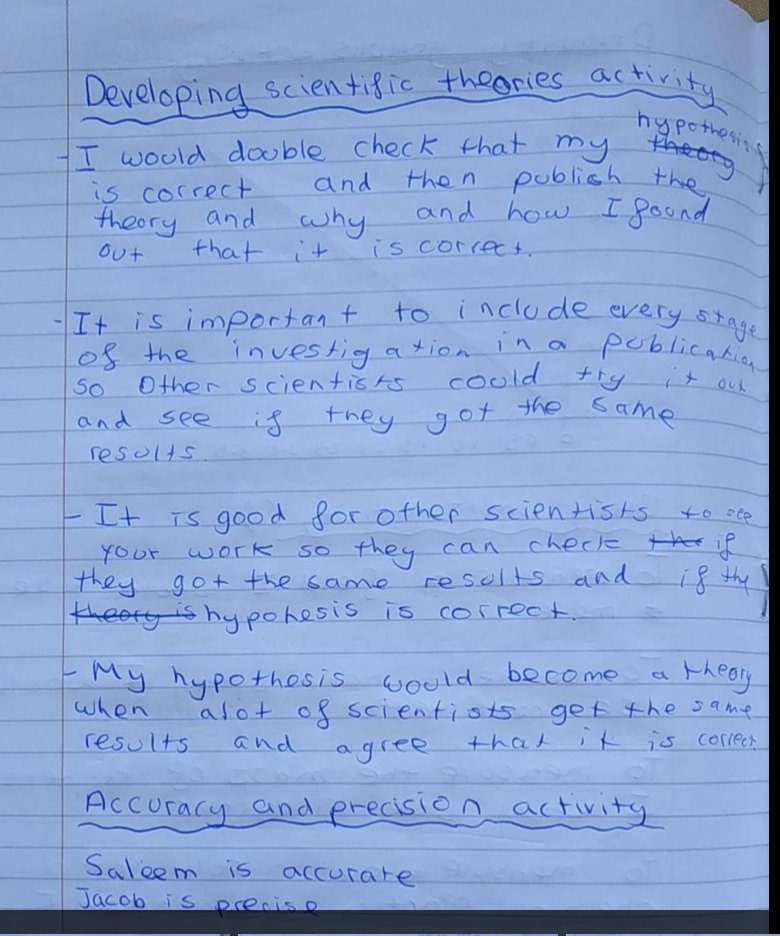 Developing scientific theories activity
- I would double check that my theory hypothesis
is correct and then publish the
theory and why and how I found
out that it is correct.
- It is important to include every stage
of the investigation in a publication
so other scientists could try it out
and see if they got the same
results.
- It is good for other scientists to see
your work so they can check the if
they got the same results and if the
theory is hypohesis is correct.
- My hypothesis would become a theory
when alot of scientists get the same
results and agree that it is correct
Accuracy and precision activity
Saleem is accurate
Jacob is precise